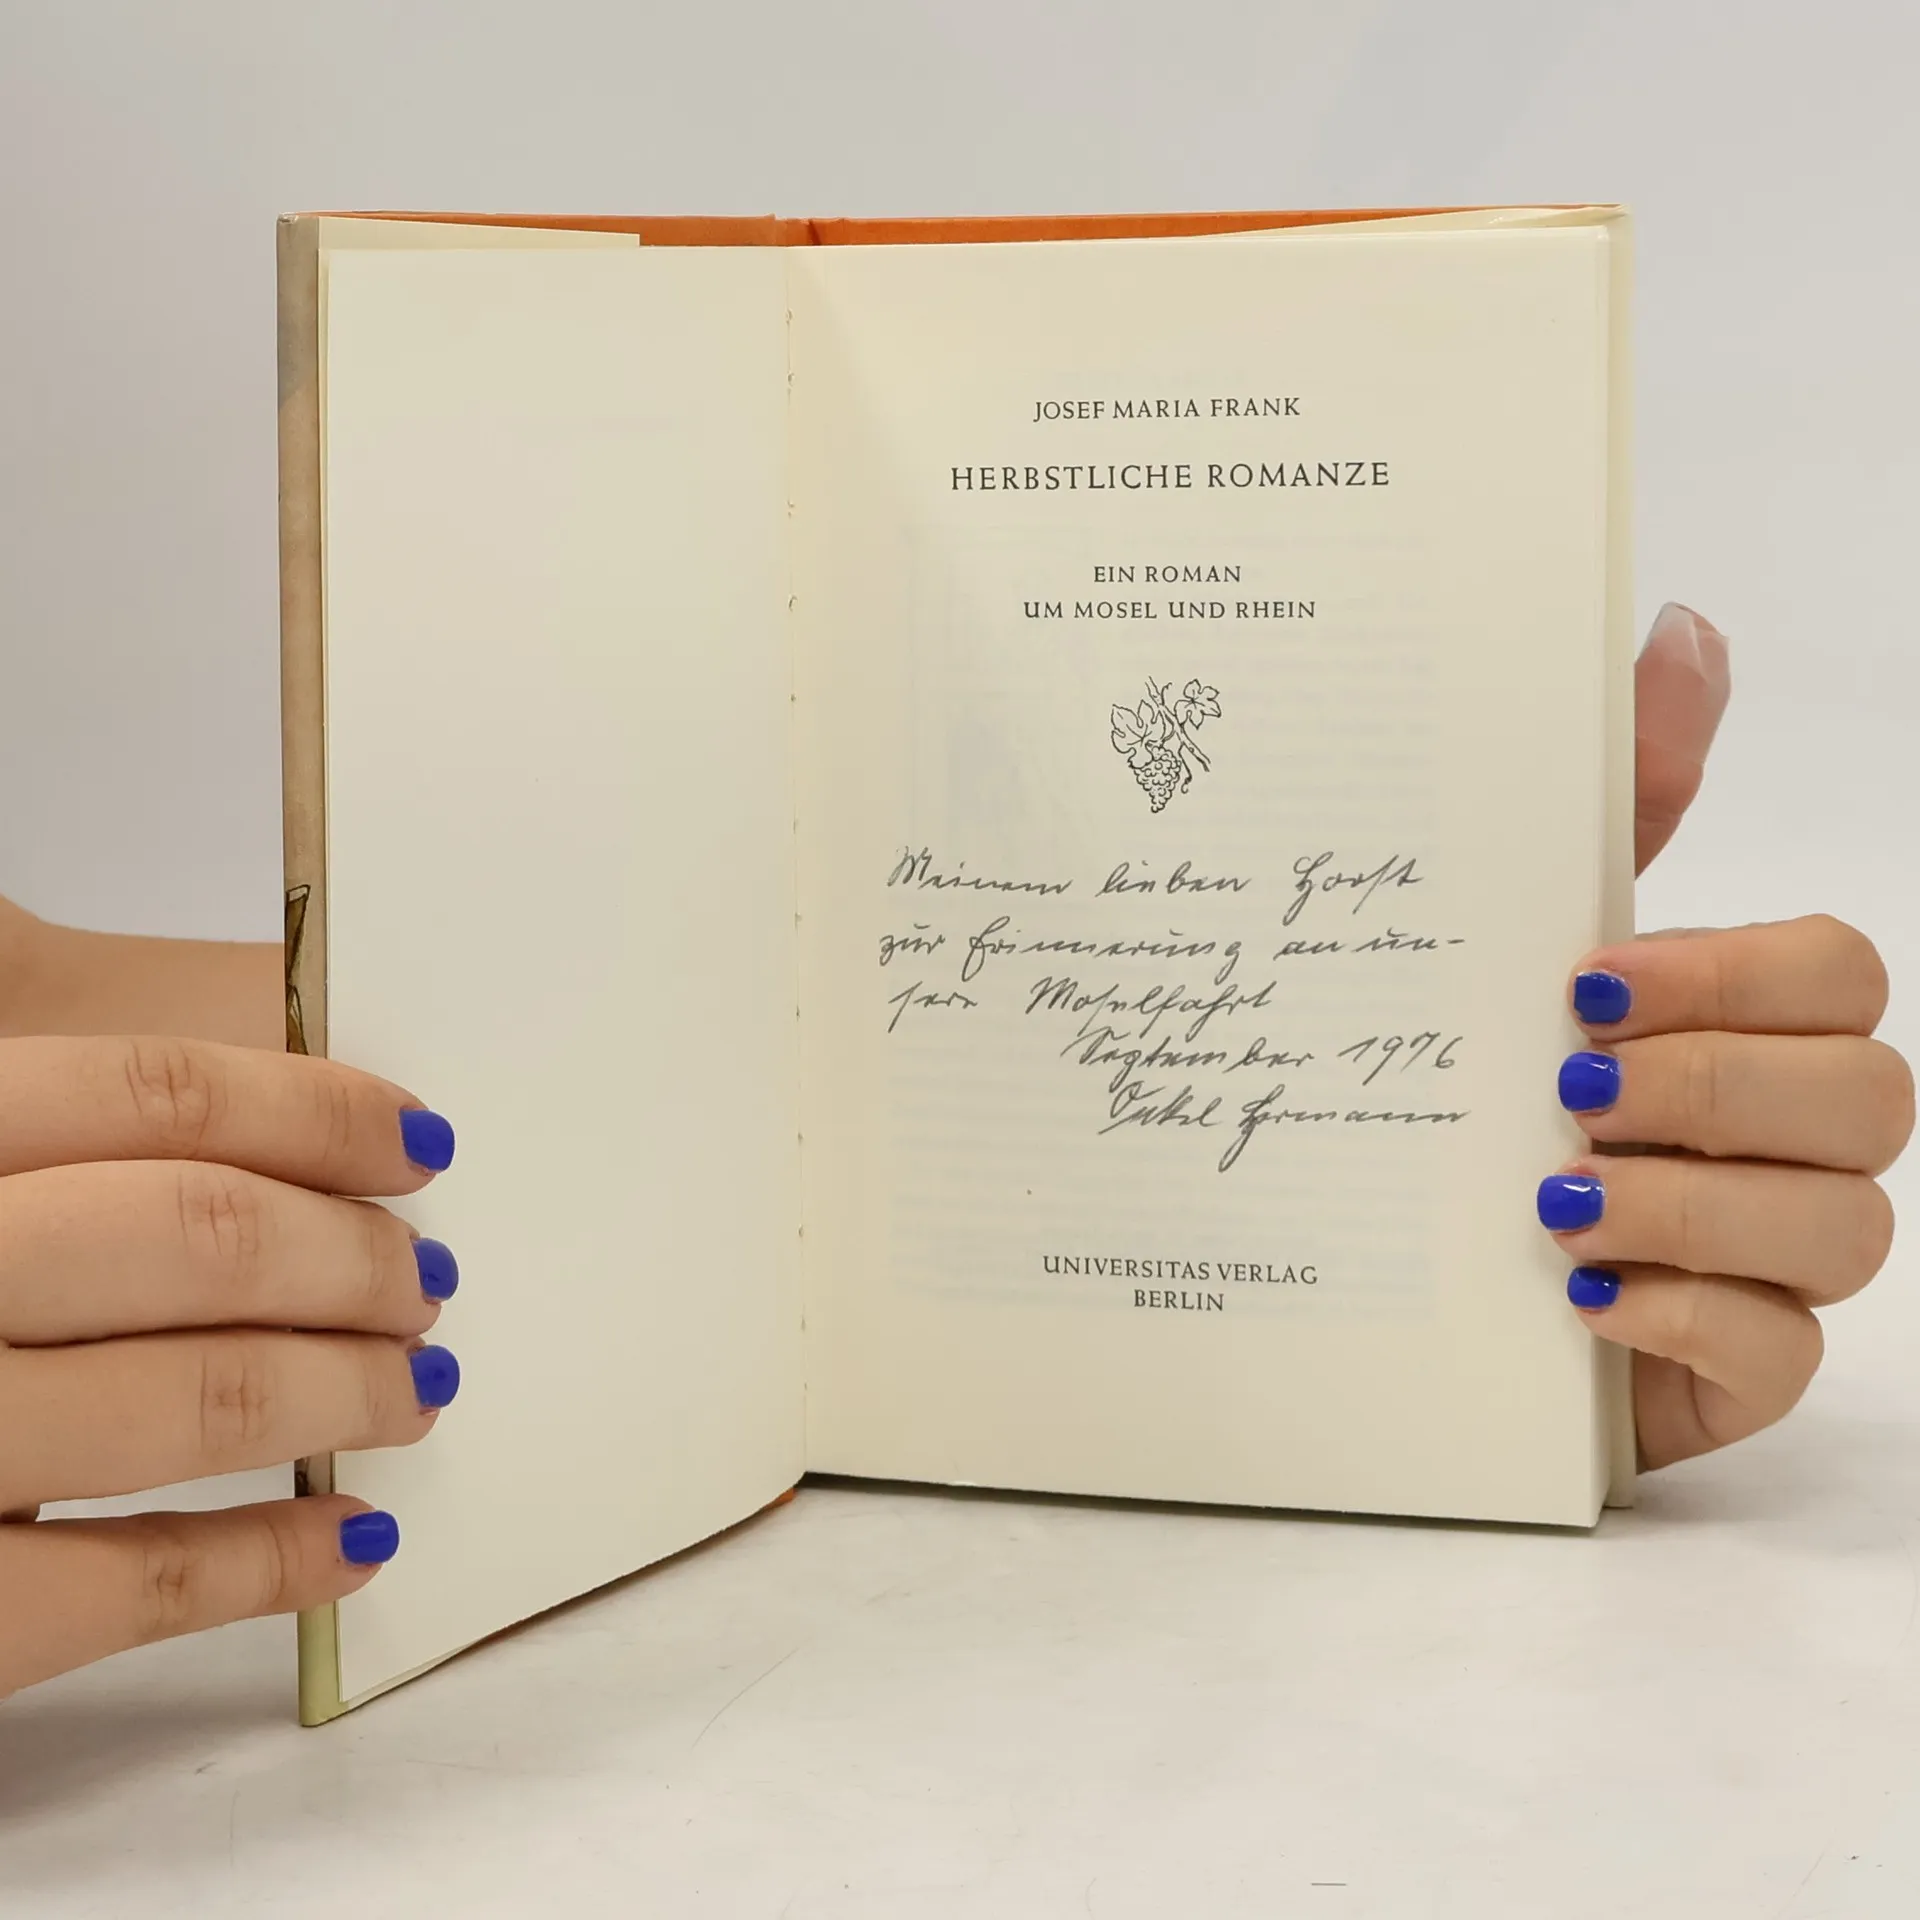 JOSEF MARIA FRANK
HERBSTLICHE ROMANZE
EIN ROMAN
UM MOSEL UND RHEIN
Meinem lieben Horst
zur Erinnerung an un-
sere Moselfahrt
September 1976
Onkel Hermann
UNIVERSITAS VERLAG
BERLIN